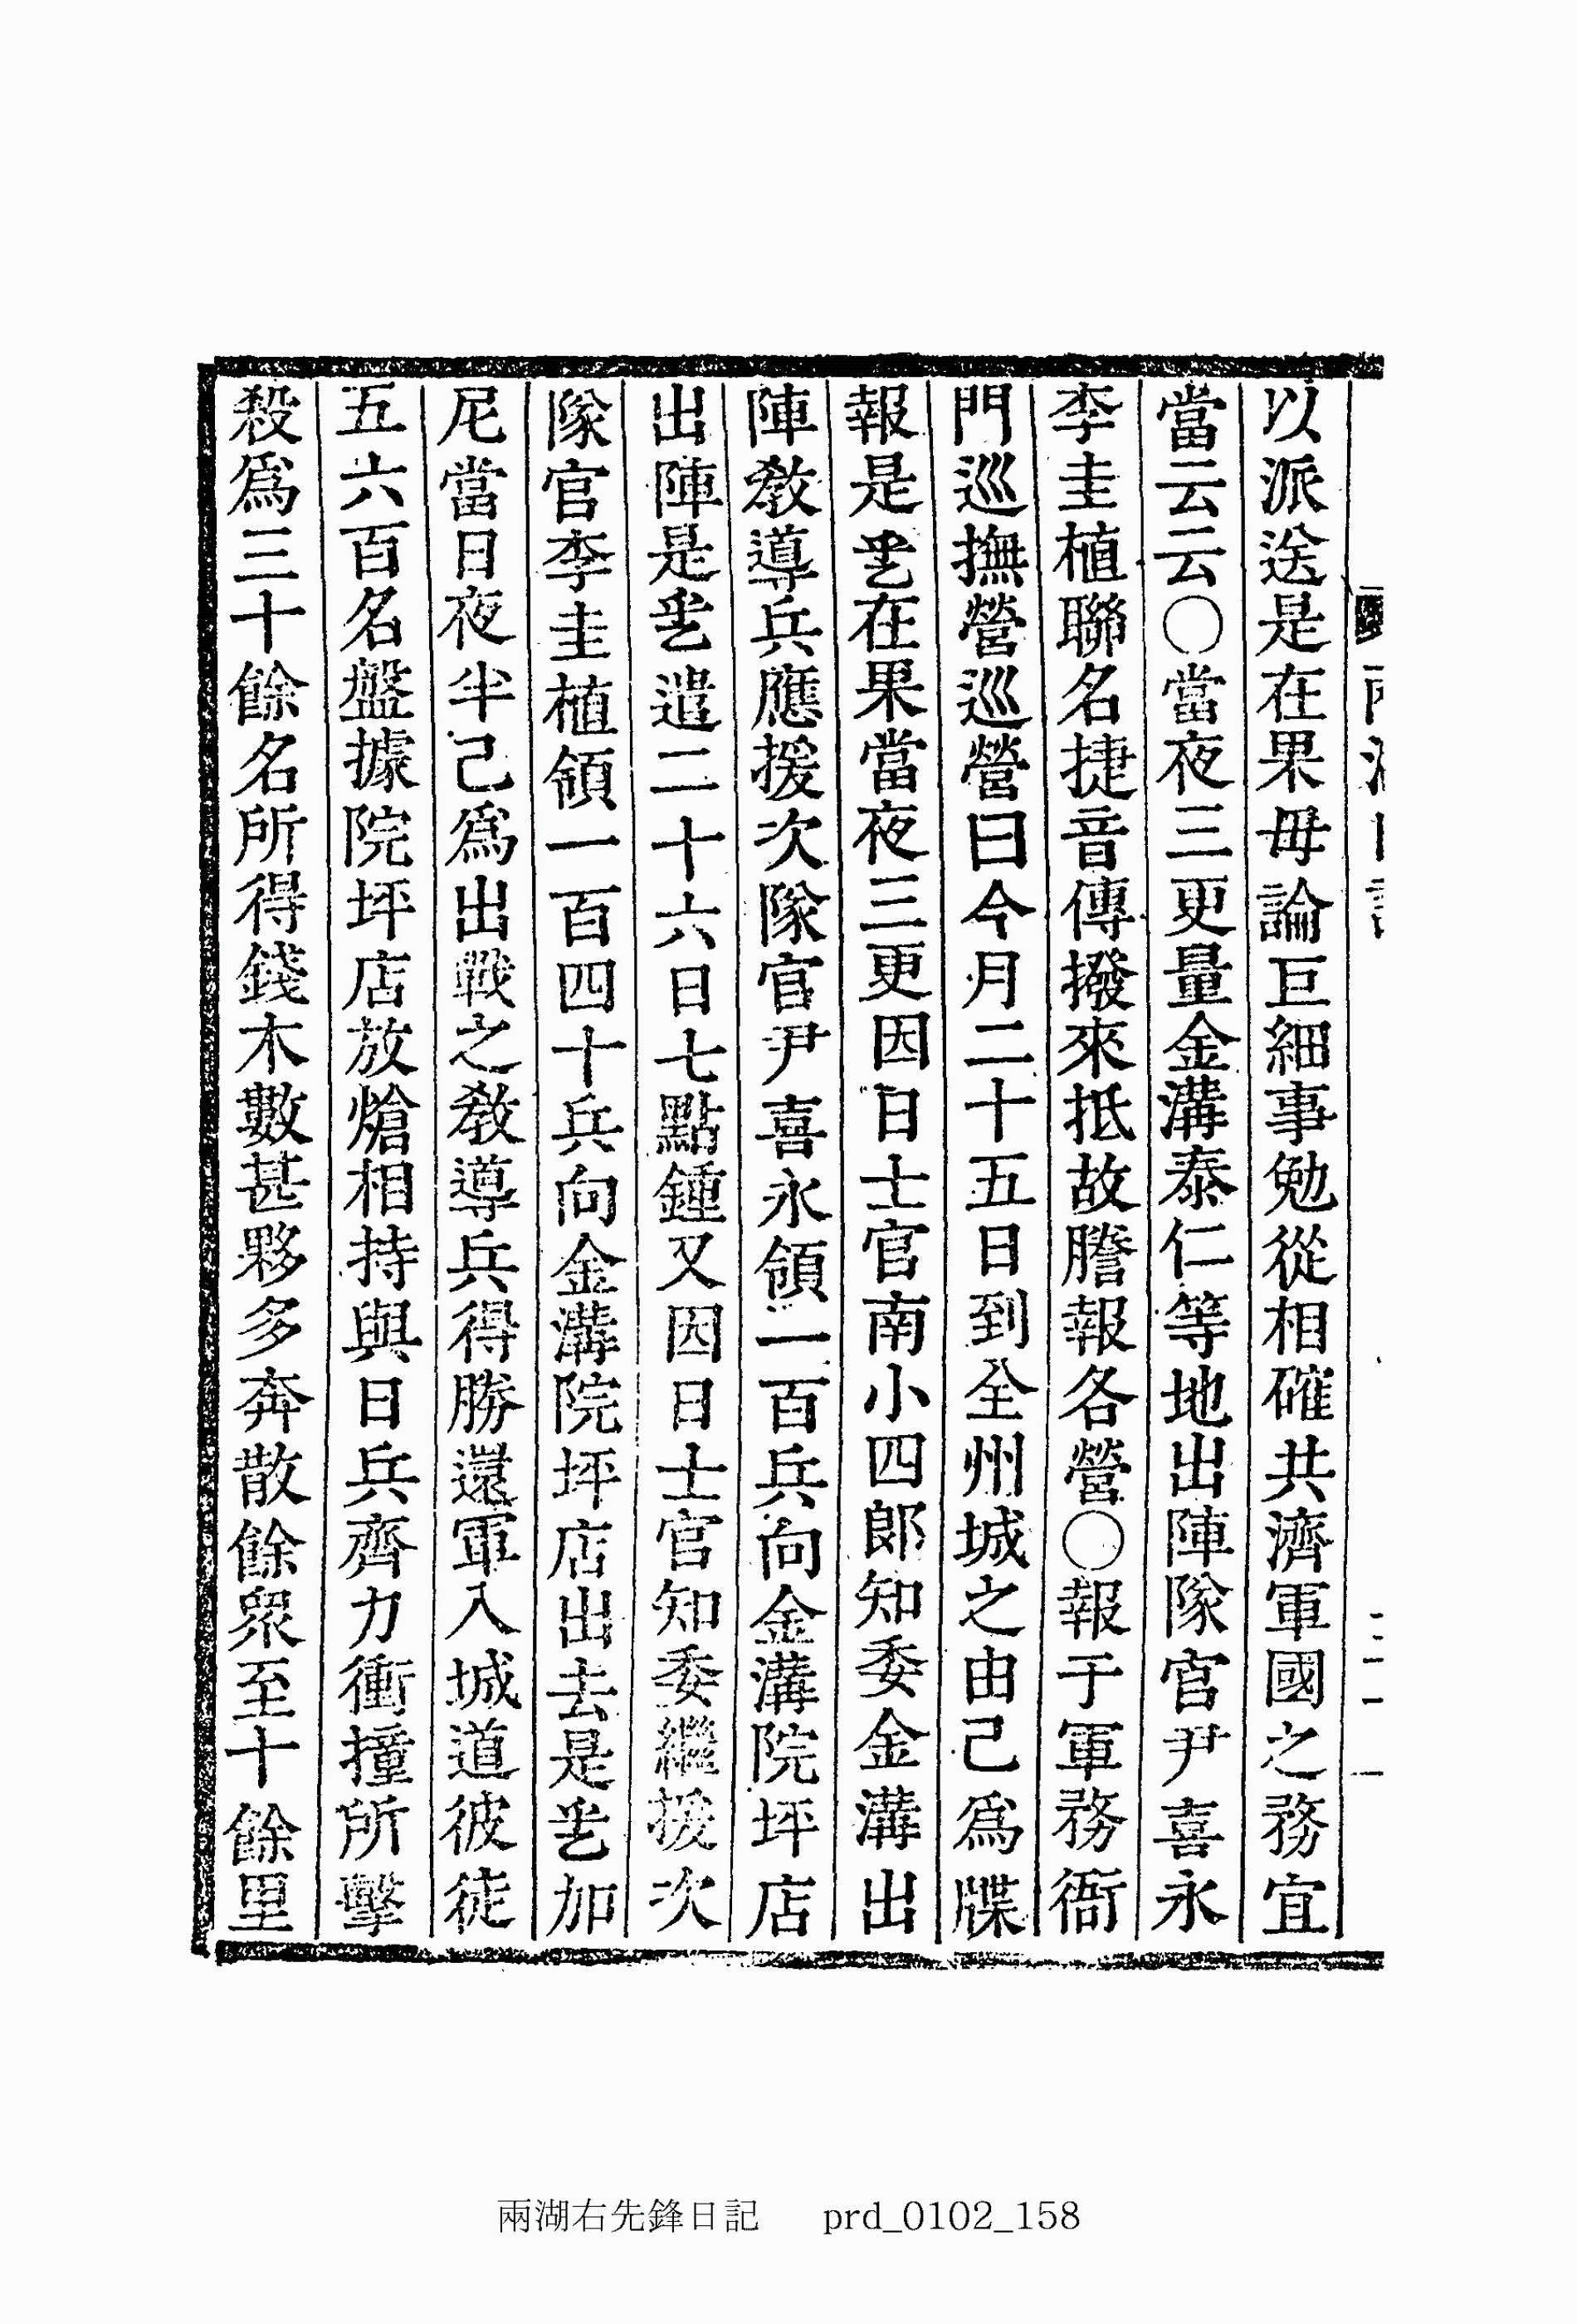 以派送是在果毋論巨細事勉從相確共濟軍國之務宜
當云云○當夜三更量金溝泰仁等地出陣隊官尹喜永
李圭植聯名捷音傳撥來抵故謄報各營○報于軍務衙
門巡撫營巡營曰今月二十五日到全州城之由己爲牒
報是乯在果當夜三更因日士官南小四郎知委金溝出
陣敎導兵應援次隊官尹喜永領一百兵向金溝院坪店
出陣是乯遣二十六日七點鍾又因日士官知委繼援次
隊官李圭植領一百四十兵向金溝院坪店出去是乯加
尼當日夜半己爲出戰之敎導兵得勝還軍入城道彼徒
五六百名盤據院坪店放熗相持與日兵齊力衝撞所擊
殺爲三十餘名所得錢木數甚夥多奔散餘衆至十餘里
兩湖右先鋒日記 prd_0102_158